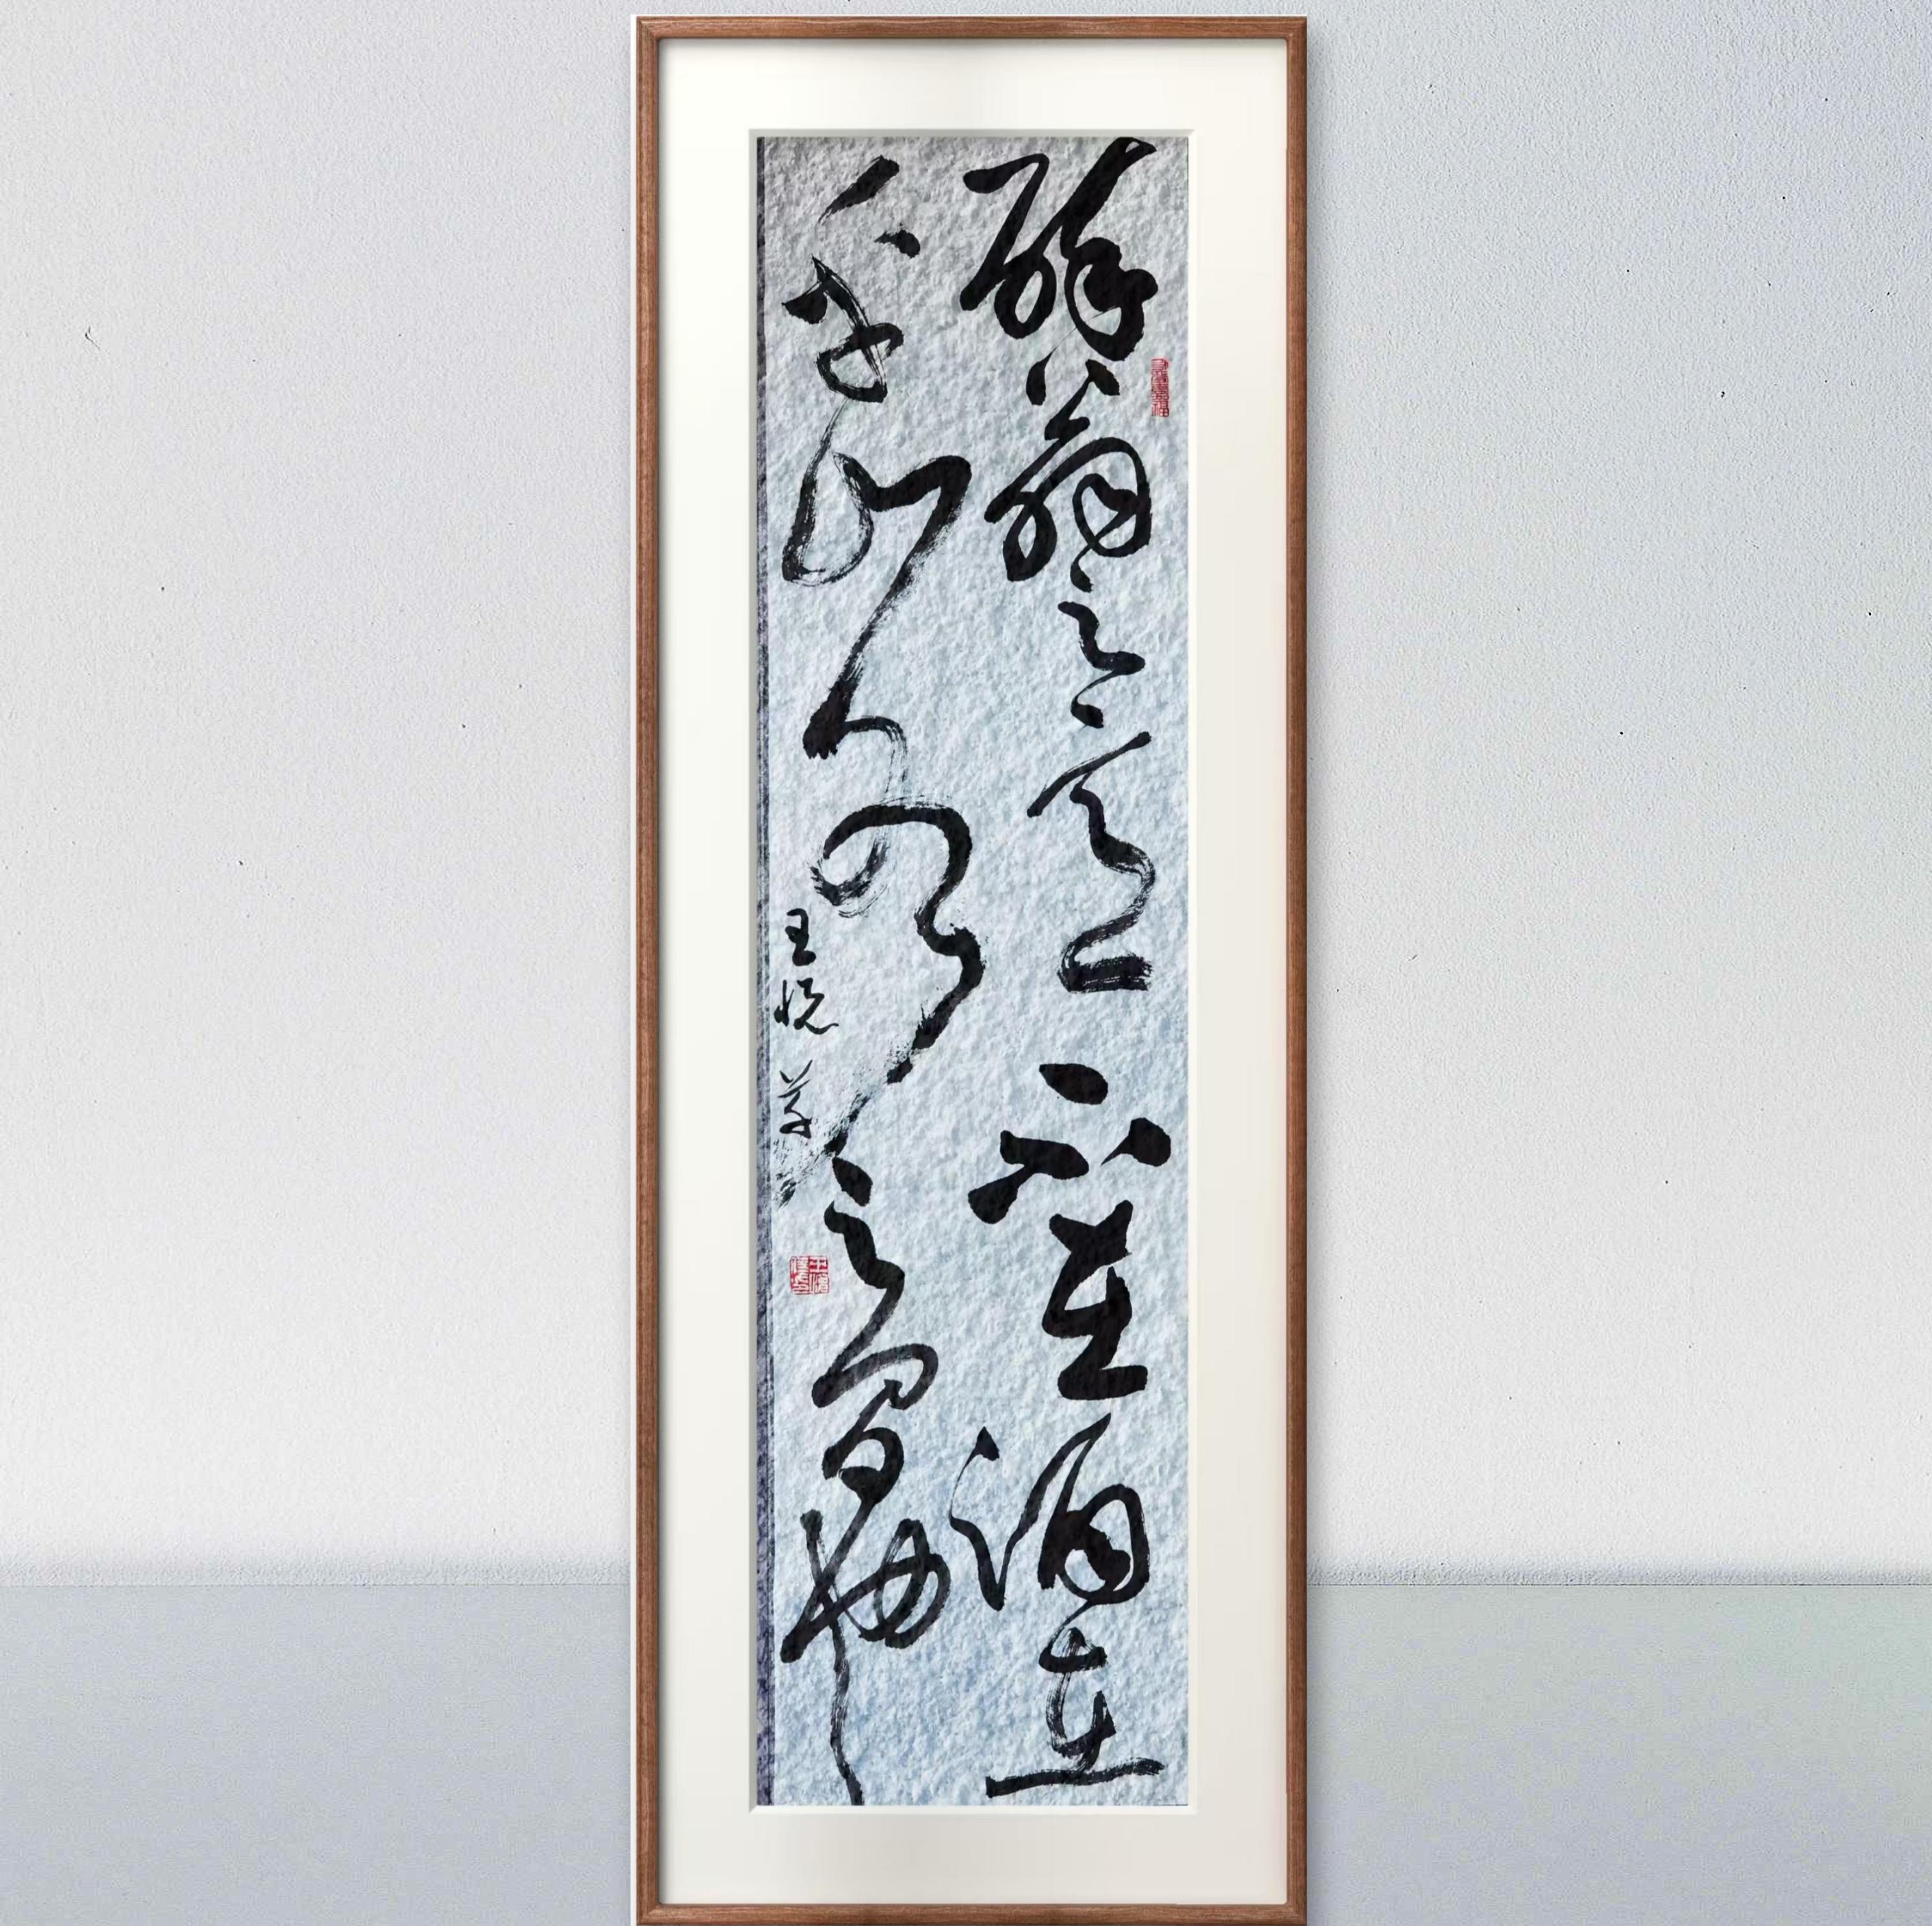 醉翁之意不在酒在
乎山水之間也
王悦